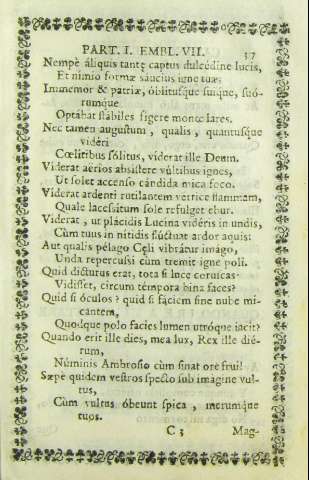 PART. I. EMBL. VII. 37
Nempè áliquis tantę captus dulcédine lucis,
Et nimio formæ sáucius igne tuæ:
Immemor & patriæ, óblitusque suíque, suó-
rumque
Optábat stábiles figere monte lares.
Nec tamen augustum, qualis, quantusque
vidéri
Cœlitibus sólitus, víderat ille Deum.
Viderat aérios absistere vúltibus ignes,
Ut solet accenso cándida mica foco.
Viderat ardenti rutilantem vertice flammam,
Quale lacessitum sole refulget ebur.
Viderat, ut plácidis Lucina vidéris in undis,
Cùm tuus in nitidis flúctuat ardor aquis:
Aut qualis pélago Cęli vibrátur imágo,
Unda repercussi cùm tremit igne poli.
Quid dicturus erat, tota si luce coruscas
Vidisset, circum témpora bina faces?
Quid si óculos? quid si fáciem sine nube mi-
cantem,
Quodque polo facies lumen utróque iacit?
Quando erit ille dies, mea lux, Rex ille dié-
rum,
Núminis Ambrosio cùm sinat ore frui!
Sæpè quidem vestros specto sub imagine vul-
tus,
Cùm vultus óbeunt spica, merumque
tuos.
C 3 Mag-